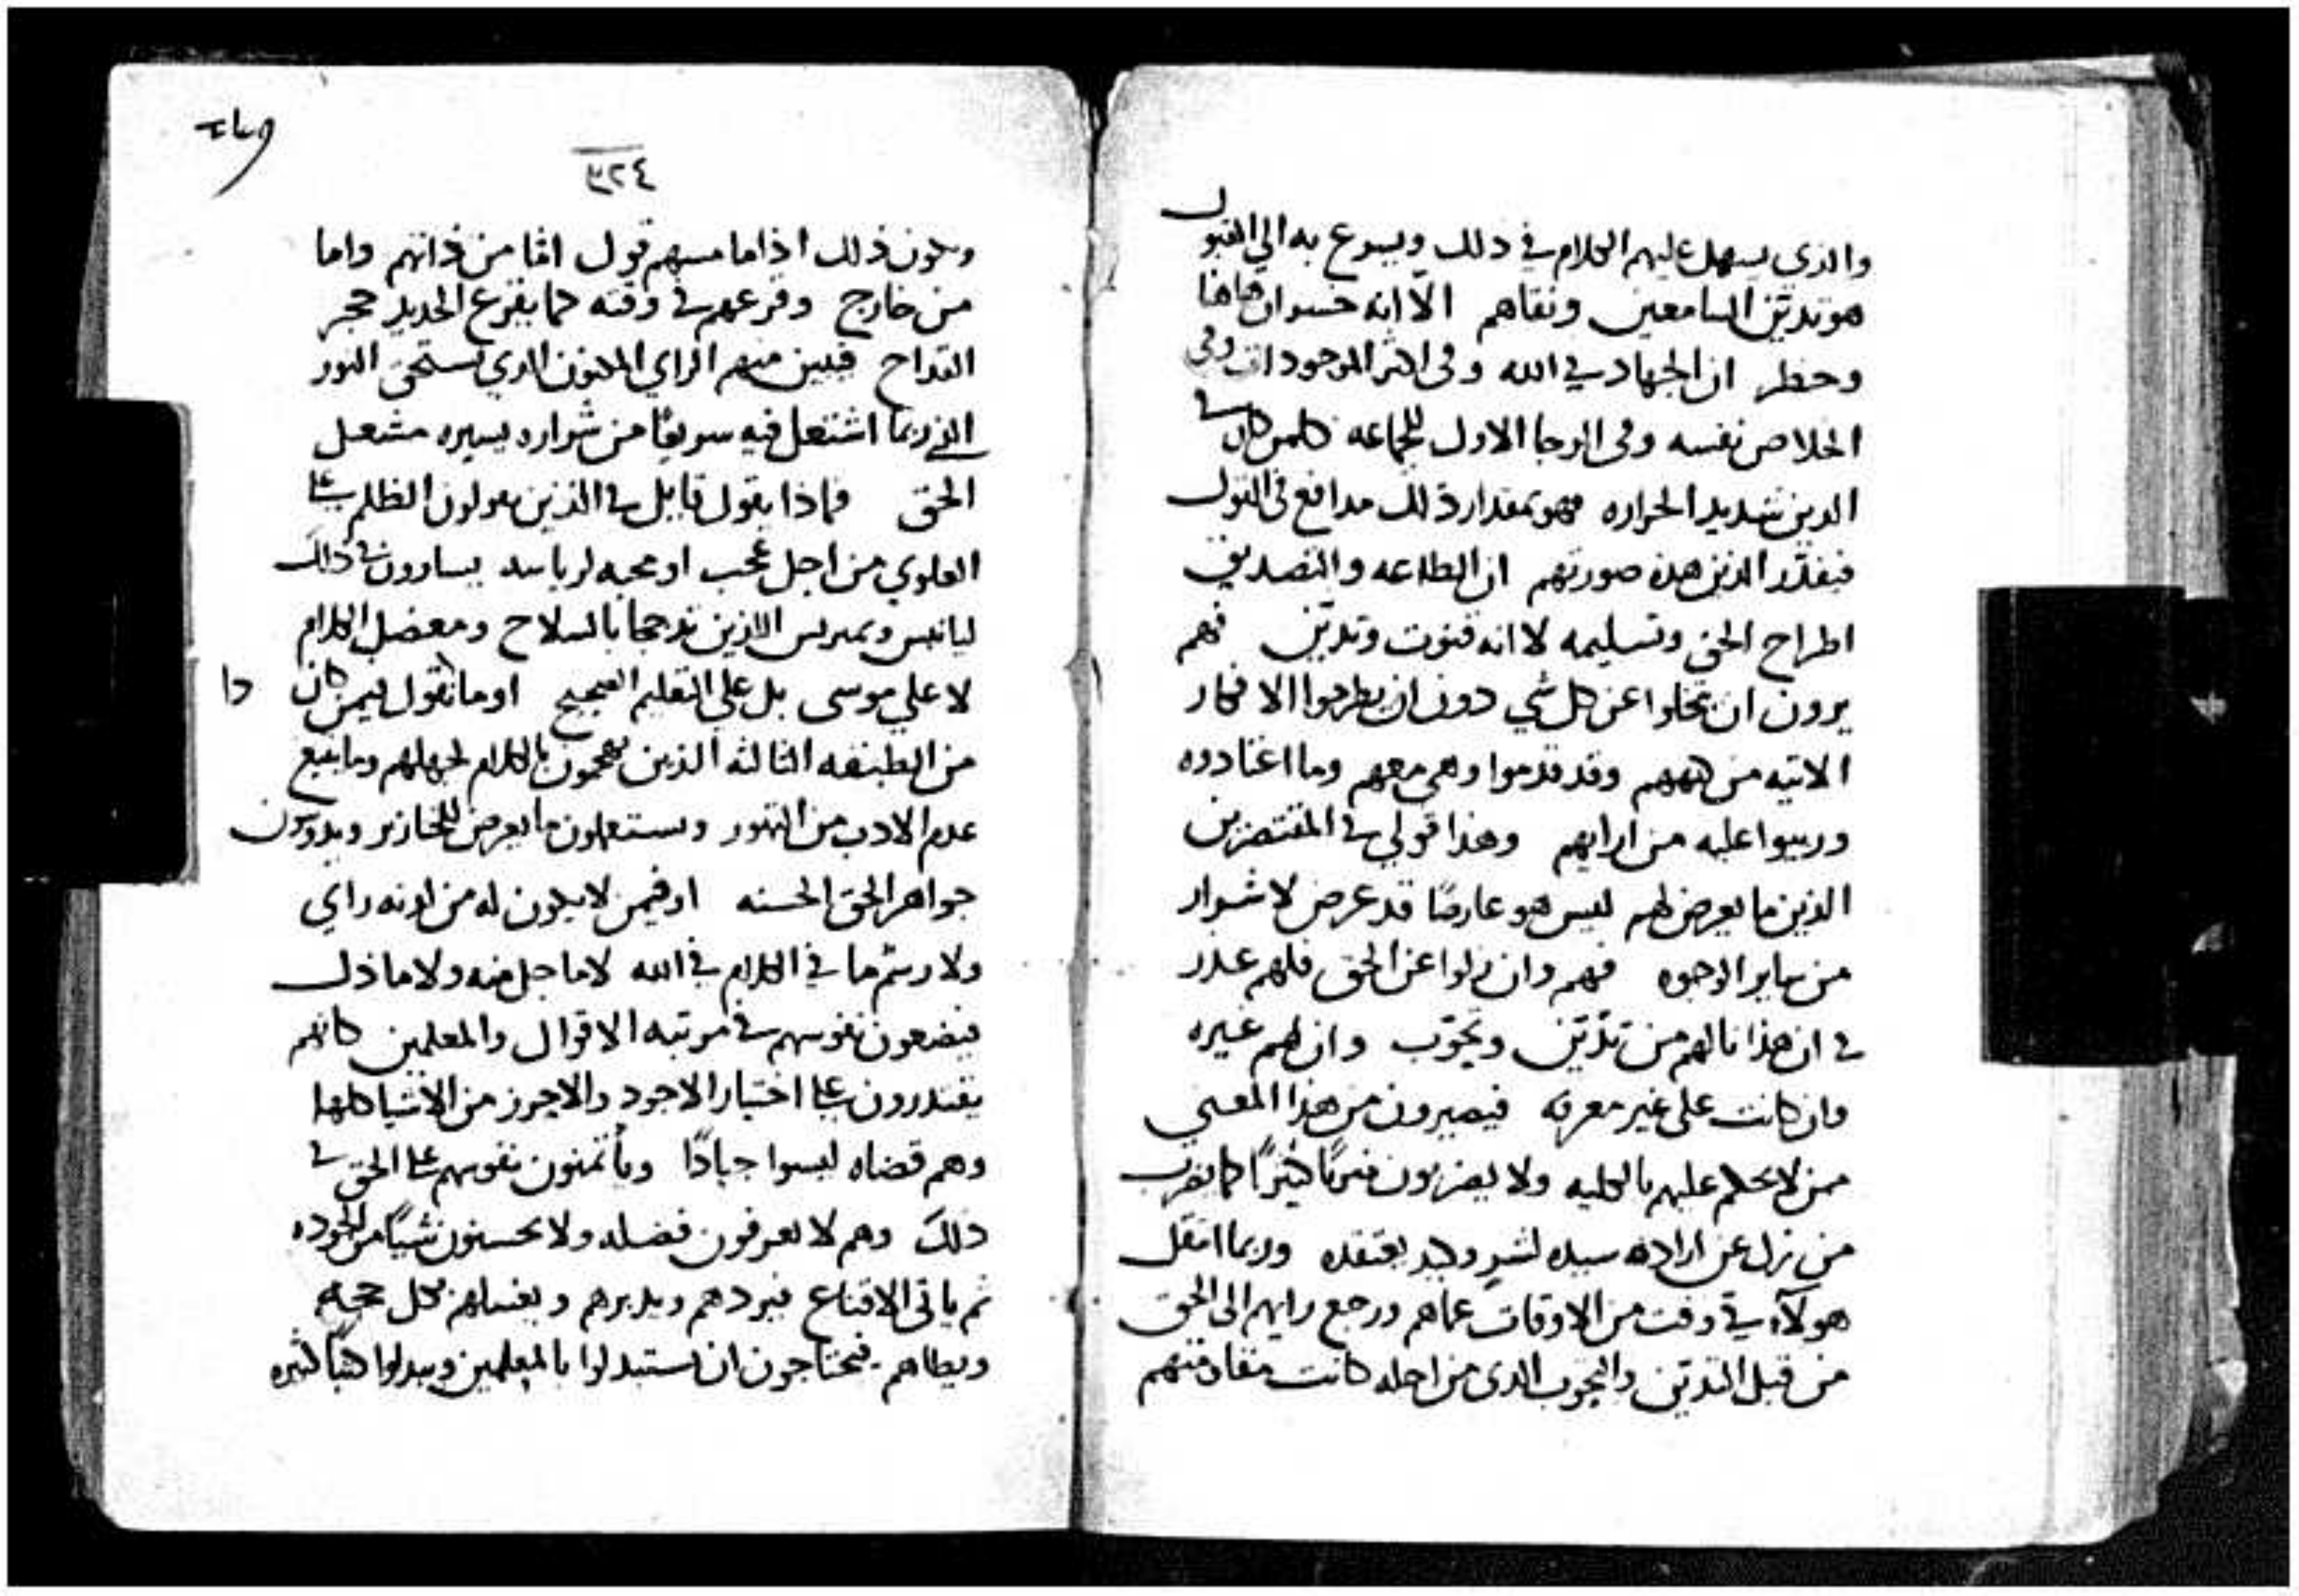 والذي يسهل عليهم الكلام في ذلك ويسرع به الي القبول
هو تديّن السامعين ونقاهم الّا انه خسران هاهنا
وخطر ان الجهاد في الله وفي اكثر الموجودات وفي
الخلاص نفسه وفي الرجا الاول للجماعه فكلمن كان في
الدين شديد الحراره فهو بمقدار ذلك مدافع في القول
فيقدّر الذين هذه صورتهم ان الطاعه والتصديق
اطراح الحق وتسليمه لا انه قنوت وتديّن فهم
يرون ان يتخلوا عن كل شي دون ان يطرحوا الافكار
الاتيه من وقد قدموا وهي معهم وما اعتادوه
وربيوا عليه من ارايهم وهذا قولي في المقتصرين
الذين ما يعرض لهم ليس هو عارضًا قد عرض لاشرار
من ساير الوجوه فهم وان زلوا عن الحق فلهم عذر
في ان هذا نالهم من تديّن وتحوّب وان لهم غيره
وان كانت على غير معرفه فيصيرون من هذا المعني
ممن لا يحكم عليهم بالكليه ولا يضربون ضربًا كثيرًا كما يضرب
من نزل عن اراده سيده لشرٍ وكيد يعتقده وربما انتقل
هولآء في وقت من الاوقات عماهم ورجع رايهم الى الحق
من قبل التديّن والتحوب الذي من اجله كانت مقاومتهم
٣٢٤
ويكون ذلك اذا ما مسهم قول امّا من ذاتهم واما
من خارج وقرعهم في وقته كما يقرع الحديد حجر
القداح فبين منهم الراي المكنون الذي يستحق النور
الذي ربما اشتعل فيه سريعًا من شراره يسيره مشعل
الحق فماذا يقول قايل في الذين يقولون الظلم علي
العلوي من اجل عُجب او محبه لرياسه يسارون في ذلك
ليانيس ويمبريس اللذين تدججا بالسلاح ومعضل الكلام
لا علي موسى بل علي التعليم الصحيح او ما نقول فيمن كان
من الطبقه الثالثه الذين يهجمون بالكلام لجهلهم وما يتبع
عدم الادب من التهور ويستعملون ما يعرض للخنازير ويدوسون
جواهر الحق الحسنه او فيمن لا يكون له من لدنه راي
ولا رسم ما في الكلام في الله لا ما جل منه ولا ما ذل
فيضعون نفوسهم في مرتبه الاقوال والمعلمين كانهم
يقتدرون علي اختيار الاجود والاحرز من الاشيا كلها
وهم قضاه ليسوا جيادًا ويأتمنون نفوسهم علي الحق في
ذلك وهم لا يعرفون فضله ولا يحسنون شيًا من الجوده
ثم ياتي الاقناع فيردهم ويديرهم بكل حجه
ويطاهم فيحتاجون ان يستبدلوا بالمعلمين ويبدلوا كتبًا كثيره